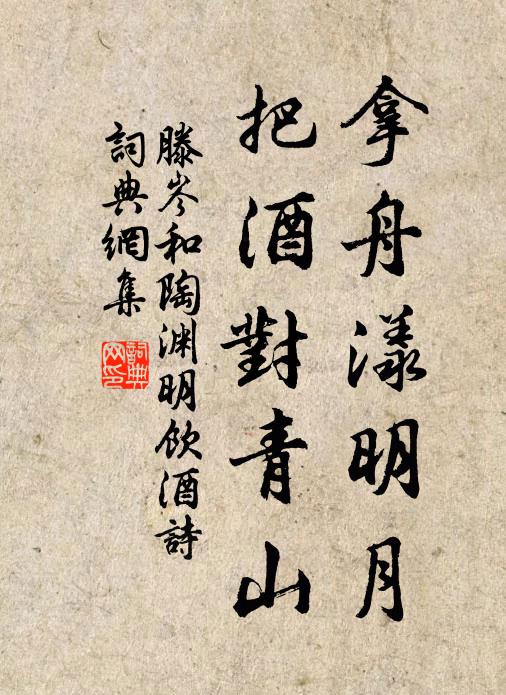 拿舟漾明月
把酒對青山
滕岑和陶渊明飲酒詩
詞典網集
詞典网印